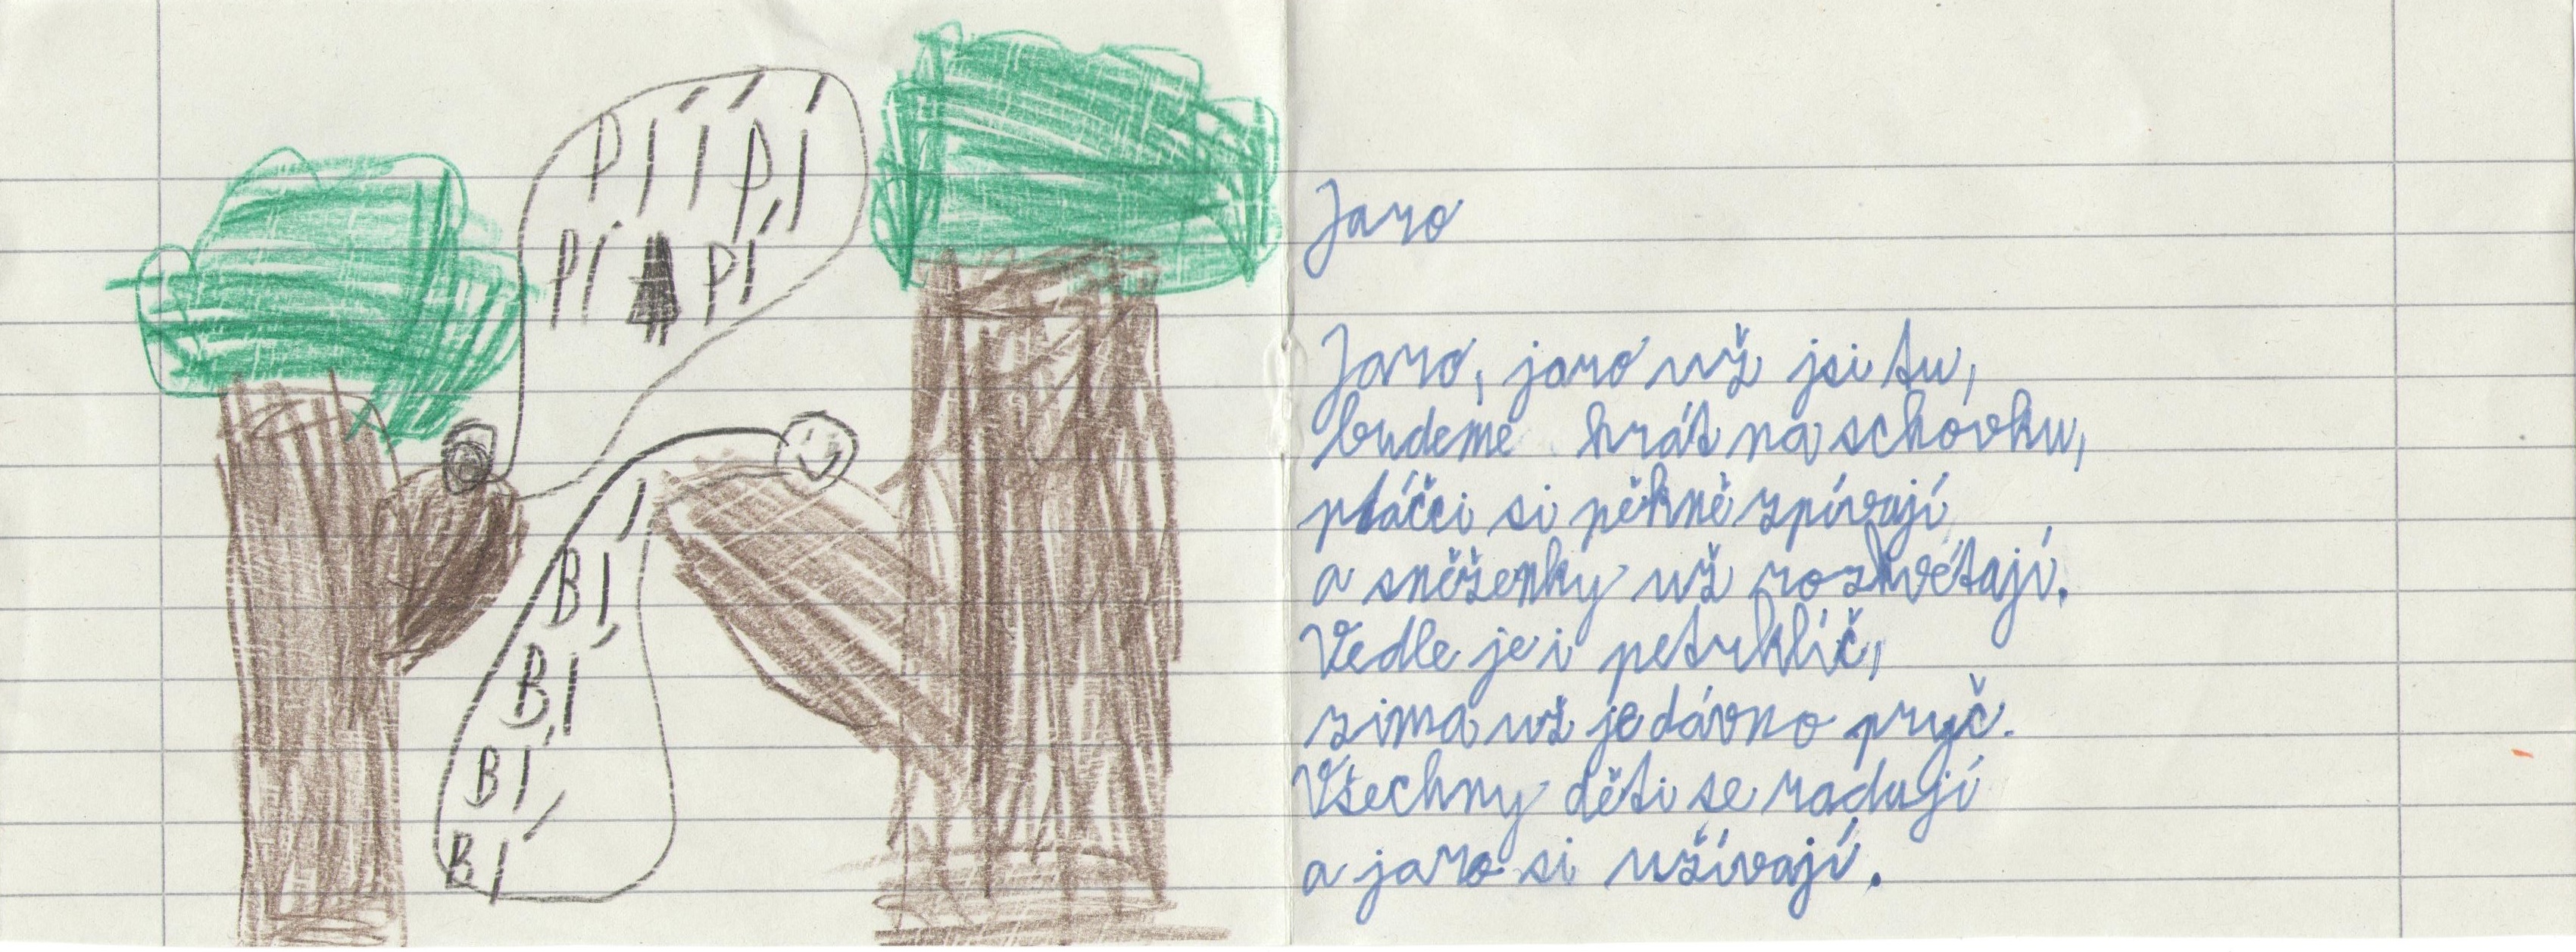 PÍÍ PÍ
PÍ PÍ
BÍ
BÍ
BÍ
BÍ
Jaro
Jaro, jaro už jsi tu,
budeme hrát na schovku,
ptáčci si pěkně zpívají
a sněženky už rozkvétají.
Vedle je i petrklíč,
zima už je dávno pryč.
Všechny děti se radují
a jaro si užívají.